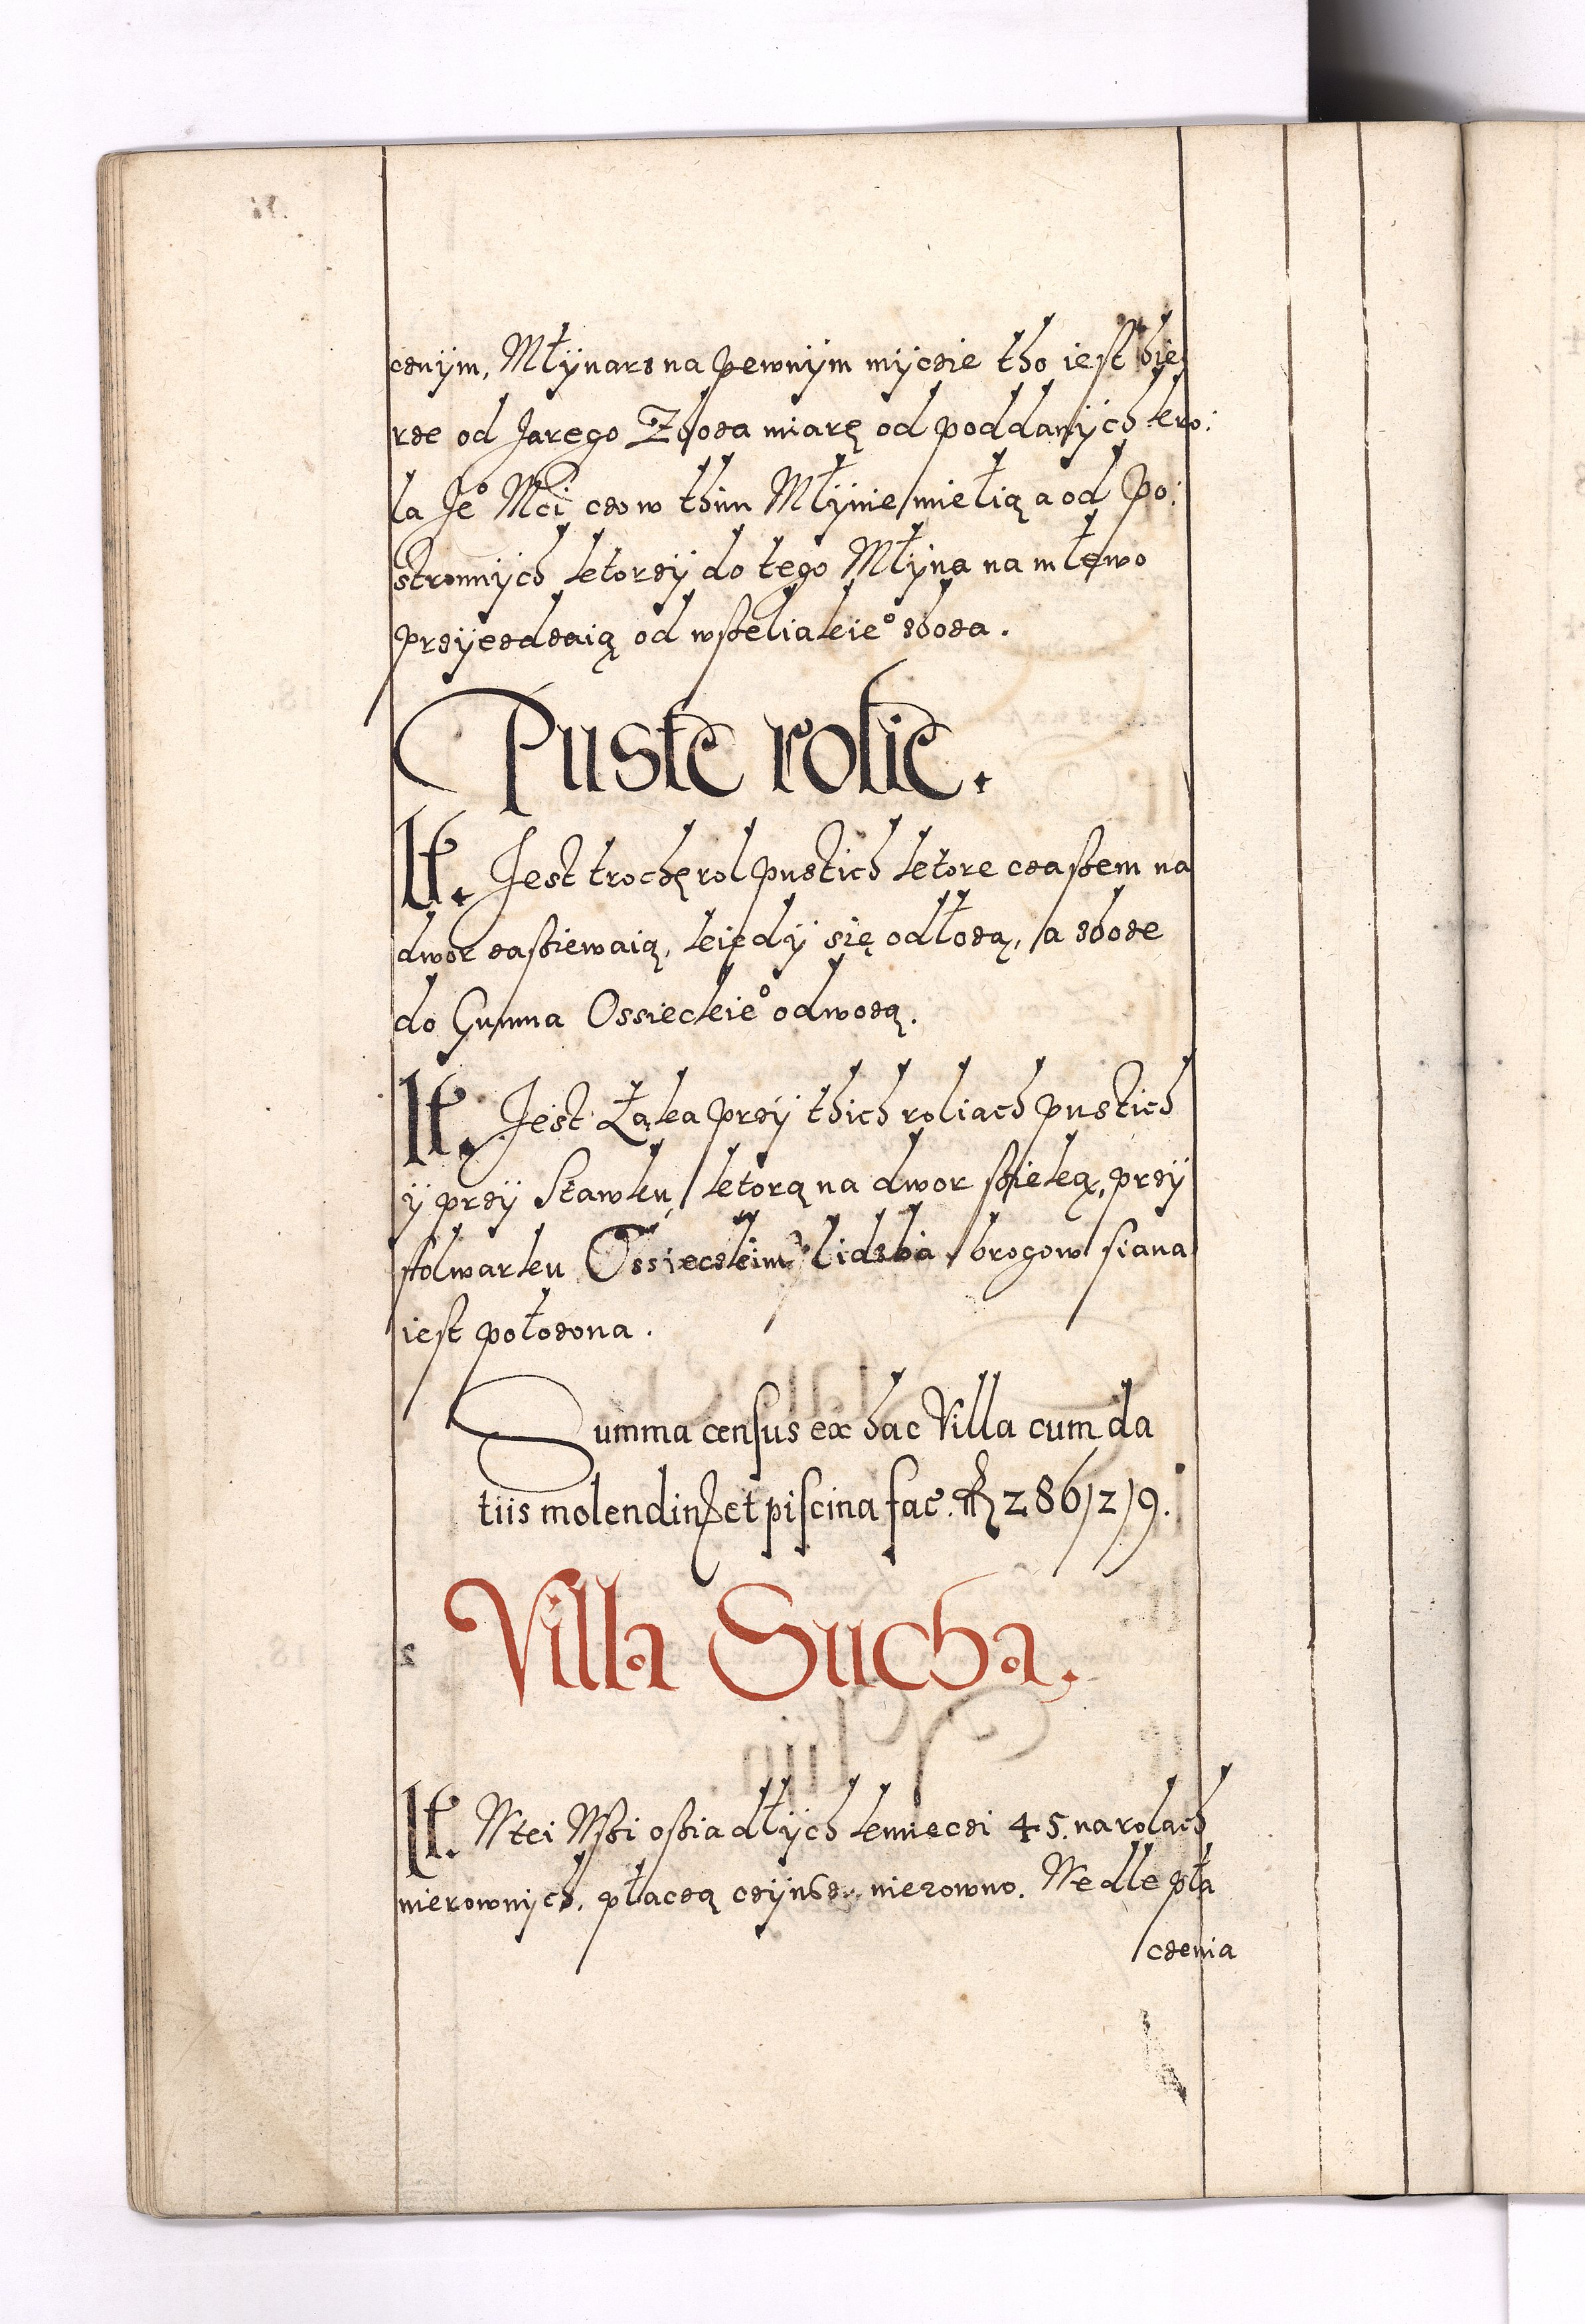 cznÿm, Młÿnarz na pewnÿm mÿczie tho iest bie
rze od Jarego Zboza miarę od poddanÿch kro:
la Jeº Mci czo w thim Młÿnie mielią a od po:
stronnÿch ktorzÿ do tego Młÿna na mlewo
przÿezdzaią od wszeliakieº zboza.
Puste rolie.
It. Jest trochę rol pustich ktore czassem na
dwor zassiewaią, kiedÿ się odłozą, a zboze
do Gumna Ossieckieº odwozą.
It. Jest Łąka przÿ thich roliach pustich
ÿ przÿ Stawku, ktorą na dwor ssieką, przÿ
folwarku Ossieczkim brogow siana
iest połozona.
Summa census ex hac Villa cum da
tiis molendinj et piscina fac. fl 286/2/9.
Villa Sucha.
It. W tei Wssi ossiadłÿch kmieczi 45. na rolach
nierownÿch, płaczą czÿnsz nierowno. Wedle pła
czenia